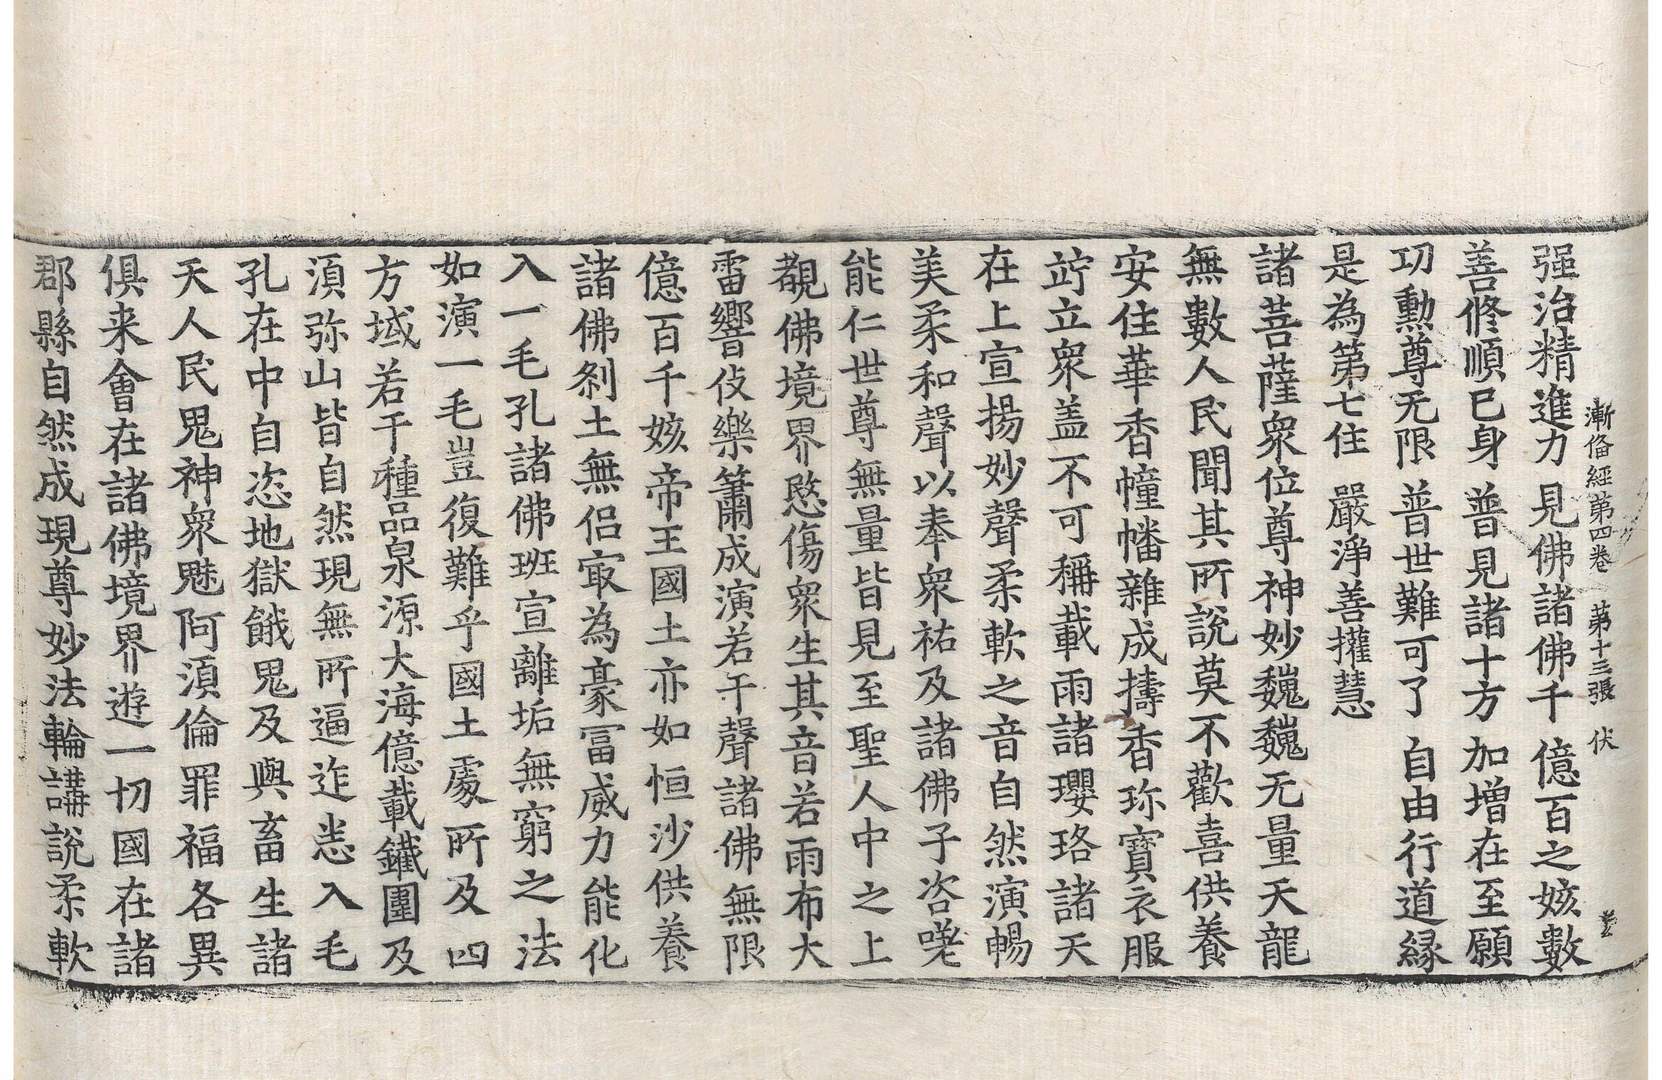 漸俻經第四卷 第十三張 伏
强治精進力 見佛諸佛千 億百之姟數
善修順己身 普見諸十方 加增在至願
功勳尊无限 普世難可了 自由行道縁
是為第七住 嚴淨善權慧
諸菩薩衆位尊神妙巍巍无量天龍
無數人民聞其所說莫不歡喜供養
安住華香幢幡雜成擣香珎寳衣服
竚立衆盖不可稱載雨諸瓔珞諸天
在上宣揚妙聲柔軟之音自然演暢
美柔和聲以奉衆祐及諸佛子咨嗟
能仁世尊無量皆見至聖人中之上
覩佛境界愍傷衆生其音若雨布大
雷響伎樂簫成演若干聲諸佛無限
億百千姟帝王國土亦如恒沙供養
諸佛刹土無侶㝡為豪冨威力能化
入一毛孔諸佛班宣離垢無窮之法
如演一毛豈復難乎國土處所及四
方域若干種品泉源大海億載鐵圍及
湏弥山皆自然現無所逼迮悉入毛
孔在中自恣地獄餓鬼及與畜生諸
天人民鬼神衆魅阿湏倫罪福各異
俱来會在諸佛境界遊一切國在諸
郡縣自然成現尊妙法輪講說柔軟